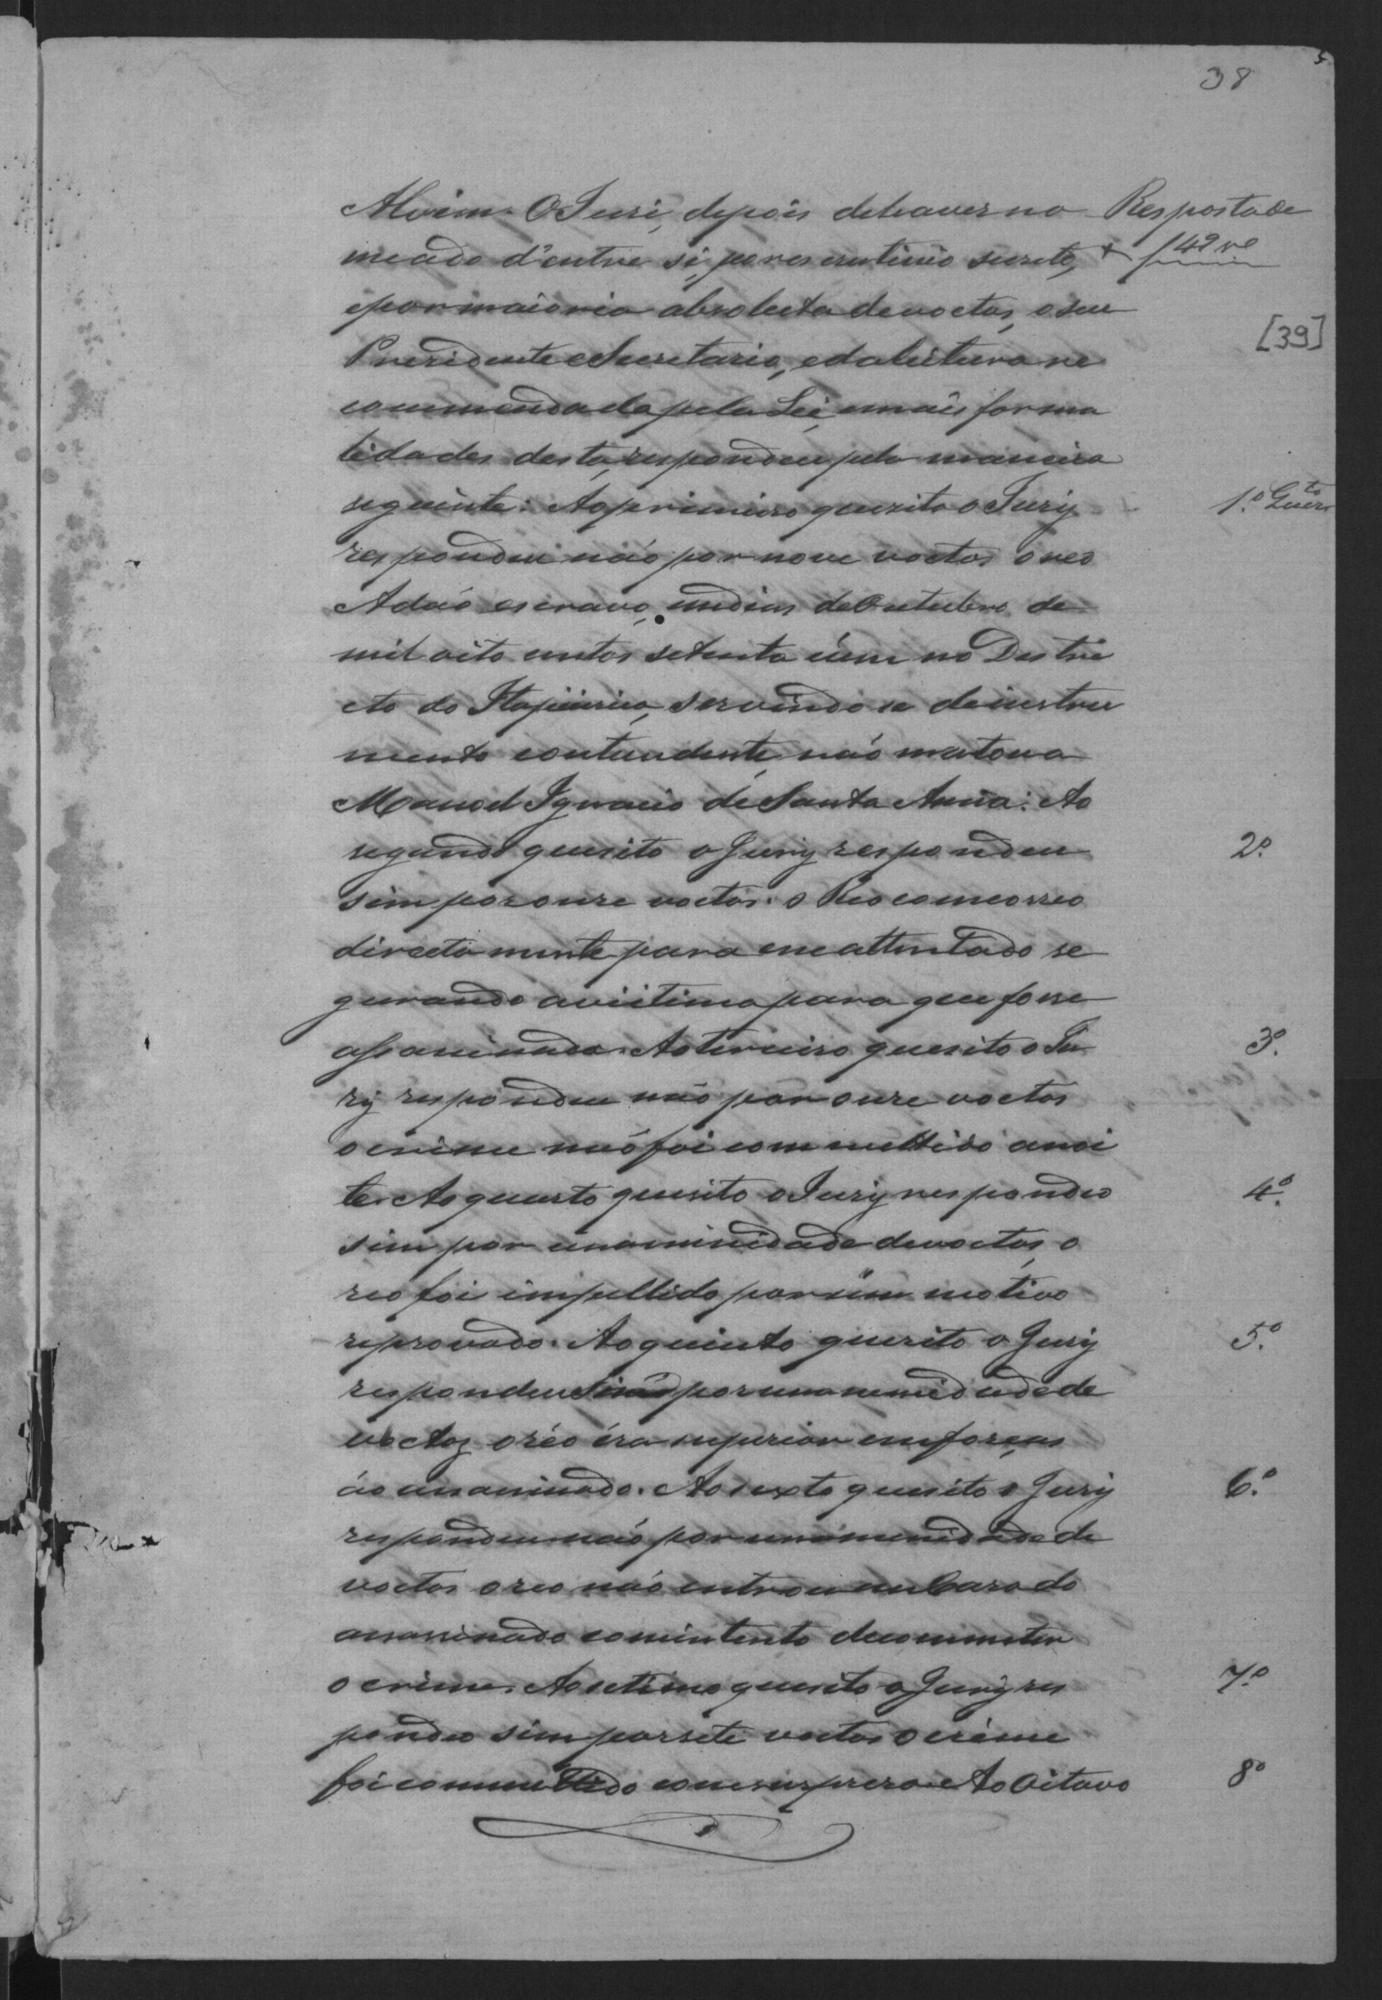 38
Alvim. O Juri, depois de haver no
Resposta de
meado d'entre si, por escrutinio secreto,
+ f 49 vº
e por maioria absoluta de voctos, o seu
[39]
Presidente e Secretario, e da leitura re
commendada pela Lei, e mais forma
lidades desta, respondeu pela maneira
seguinte: Ao primeiro quesito o Jury
1.º Questo
respondeu não por nove voctos o reo
Adão escravo, em dias de Outubro de
mil oito centos setenta e úm no Destri
cto do Itapicirica, servindo se de instru
mento contundente, não matou a
Manoel Ignacio de Santa Anna: Ao
segundo quesito o Jury respondeu
2.º
sim por onze voctos: o Reo comcorreo
directa mente para esse attentado se
gurando a victima para que fosse
assacinado. Ao terceiro quesito o Ju
3.º
ry respondeu não por onze voctos
o crime não foi commettido a noi
te. Ao quarto quesito o Jury respondeo
4.º
sim por unanimidade de voctos, o
reo foi impellido por úm motivo
reprovado. Ao quinto quesito o Jury
5.º
respondeu Sim por unanimidade de
voctos o réo éra superior em forças
ao assacinado. Ao sexto quesito o Jury
6.º
respondeu não por unanimidade de
voctos o reo não entrou em Casa do
assassinado com intento de commeter
o crime. Ao setimo quesito o Jury res
7.º
pondeo sim por sete voctos o crime
foi commettido com surpreza. Ao Oitavo
8º